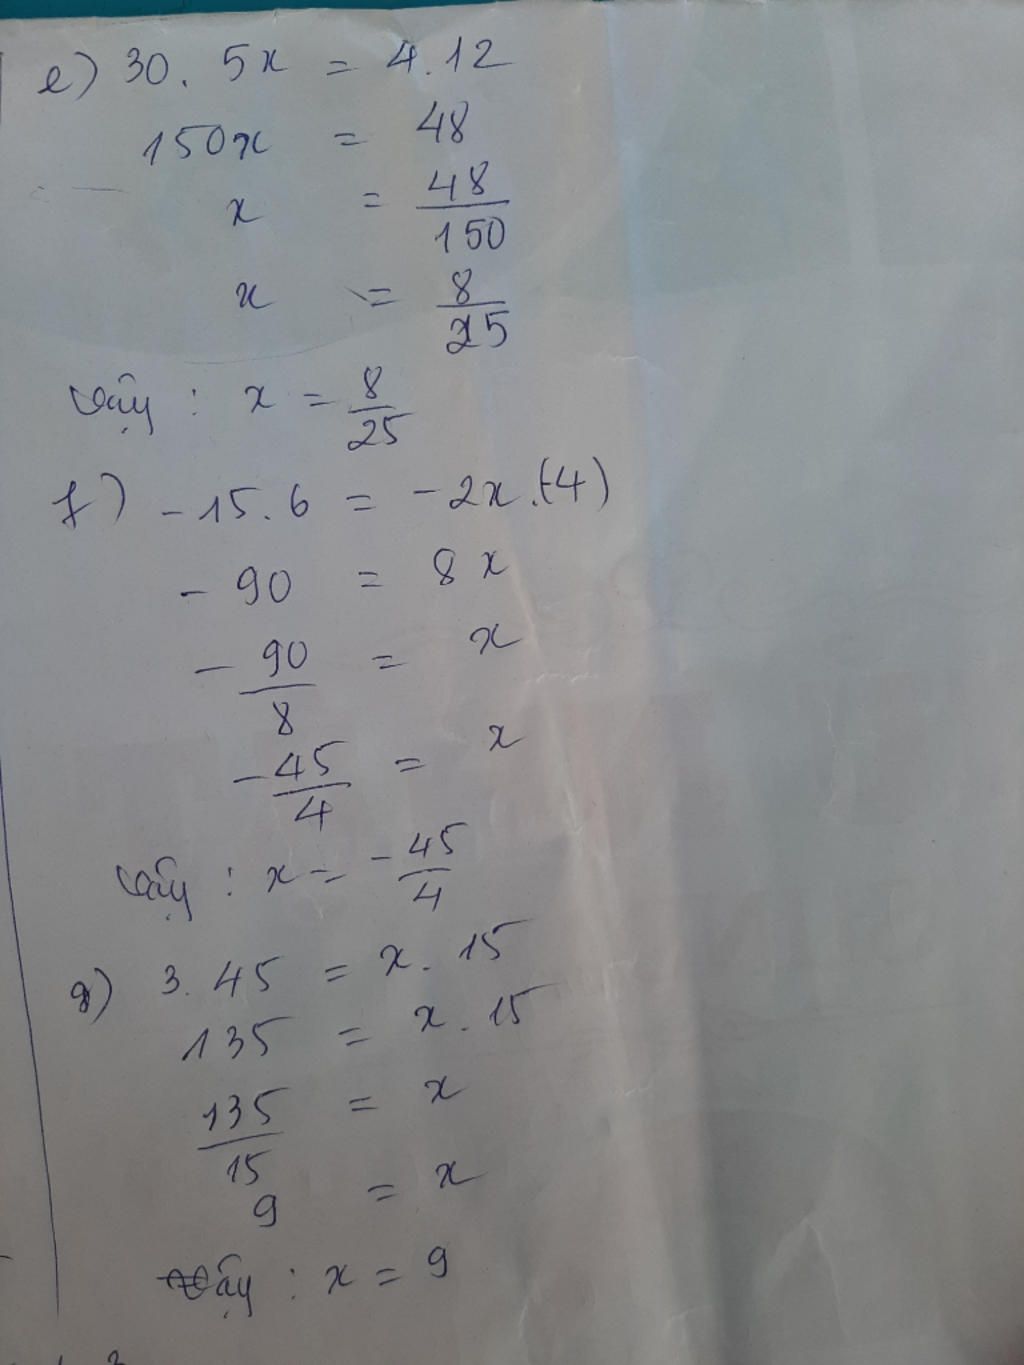 e) 30. 5x = 4.12
150x = 48
x = 48/150
x = 8/25
Vậy : x = 8/25
f) -15.6 = -2x.(-4)
- 90 = 8x
- 90/8 = x
- 45/4 = x
Vậy : x = - 45/4
g) 3. 45 = x. 15
135 = x. 15
135/15 = x
9 = x
Vậy : x = 9